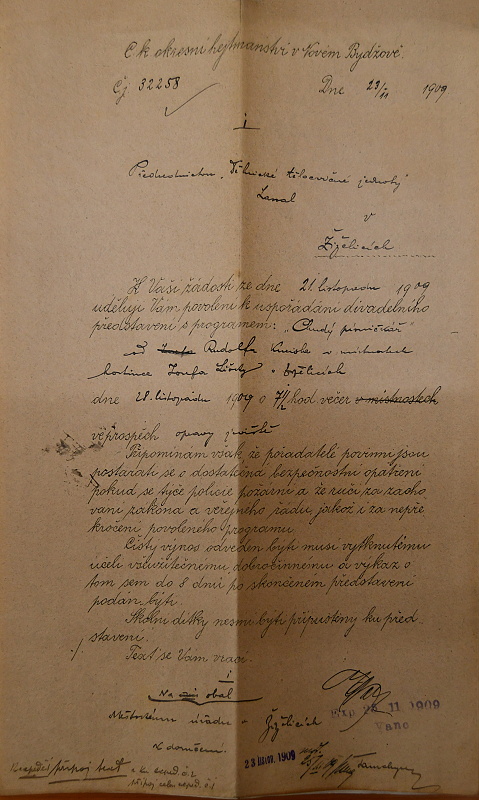 C. k. okresní hejtmanství v Novém Bydžově.
Čj. 32258 Dne 23/11 1909
Předsednictvu „Dělnické tělocvičné jednoty
v
Žiželicích
K Vaší žádosti ze dne 21. listopadu 1909
uděluji Vám povolení k uspořádání divadelního
představení s programem: „Chudý písničkář"
od Josefa Rudolfa v místnostech
hostince Josefa v Žiželicích
dne 28. listopadu 1909 o 7 1/2 hod. večer v místnostech
ve prospěch opravy jeviště
Připomínám však že pořadatelé povinni jsou
postarati se o dostatečná bezpečnostní opatření
pokud se týče policie požární a že ručí za zacho
vání zákona a veřejného řádu jakož i za nepře
kročení povoleného programu
Čistý výnos odveden býti musí vytknutému
účeli všeužitečnému dobročinnému a výkaz o
tom sem do 8 dnů po skončeném představení
podán býti.
Školní dítky nesmí býti připuštěny ku před-
stavení.
Text se Vám vrací.
Na obal
Městskému úřadu v Žiželicích
k domácím.
Exp 25 11 1909
Vanc
23 listop. 1909
připoj text